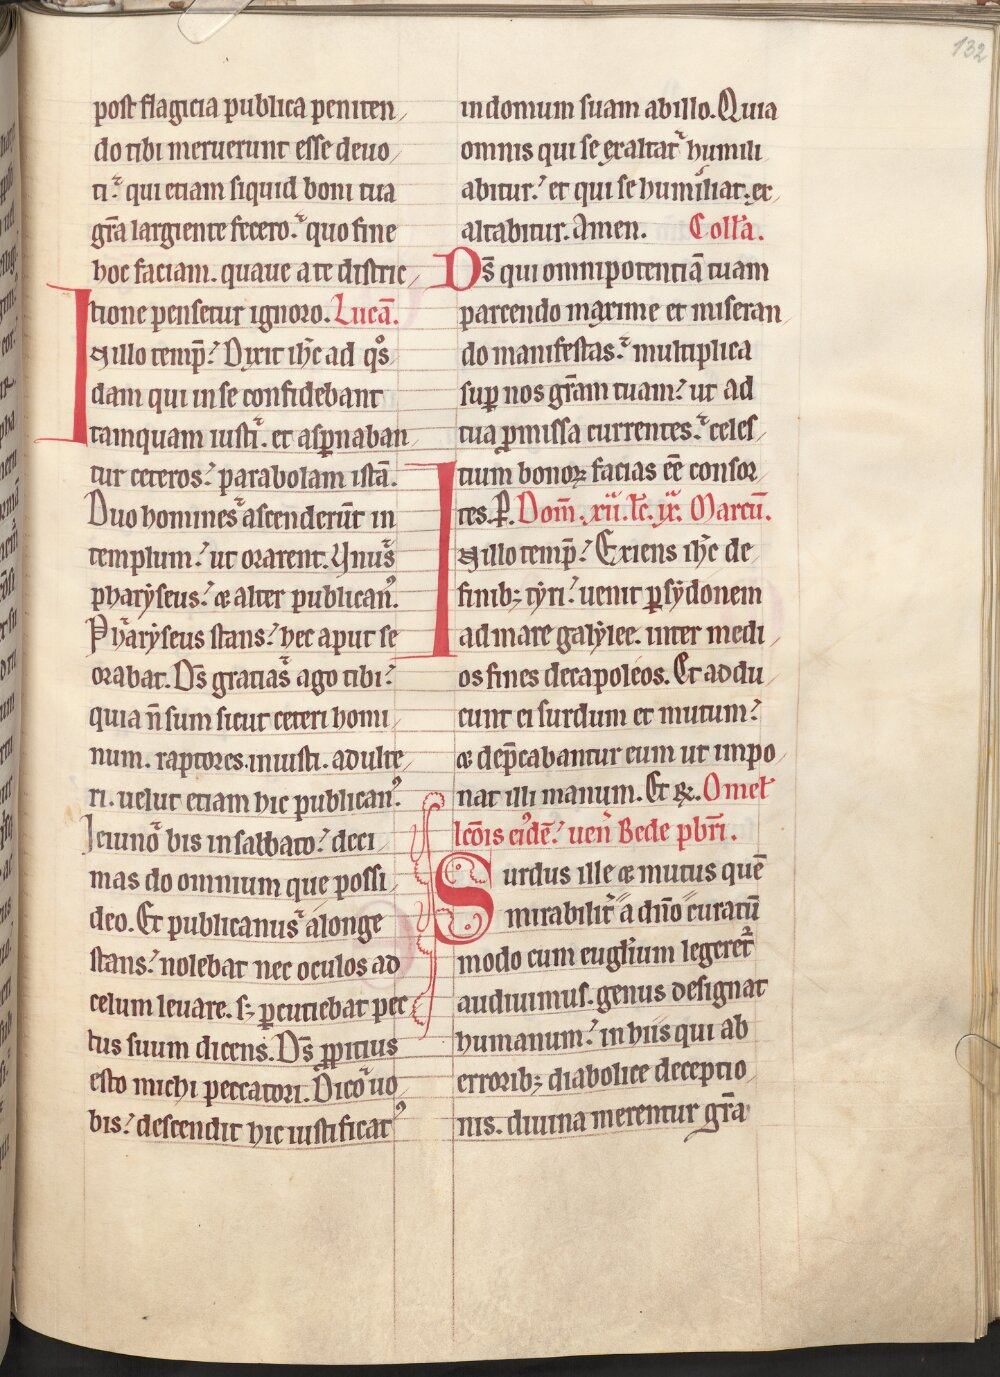 132
post flagicia publica peniten
do tibi meruerunt esse deuo
ti. qui etiam siquid boni tua
gr̄a largiente fecero. quo fine
hoc faciam. quaue a te distric
tione pensetur ignoro. Lucā.
In illo temp̄. Dixit ih̄c ad qͦs
dam qui in se confidebant
tamquam iusti. et asꝑnaban
tur ceteros. parabolam istā.
Duo homines ascenderūt in
templum. ut orarent. Unus
pharẏseus. & alter publicanꝰ.
Pharẏseus stans. hec aput se
orabat. Ds̄ gratias ago tibi.
quia n̄ sum sicut ceteri homi
num. raptores. iniusti. adulte
ri. uelut etiam hic publicanꝰ.
Ieiuno bis in sabbato. deci
mas do omnium que possi
deo. Et publicanus a longe
stans. nolebat nec oculos ad
celum leuare. sꝫ ꝑcutiebat pec
tus suum dicens. Ds̄ ꝓpitius
esto michi peccatori. Dico uo
bis. descendit hic iustificatꝰ
in domum suam ab illo. Quia
omnis qui se exaltat humili
abitur. et qui se humiliat. ex
altabitur. Amen. Coll'a.
Ds̄ qui omnipotentiā tuam
parcendo maxime et miseran
do manifestas. multiplica
suꝑ nos gr̄am tuam. ut ad
tua ꝓmissa currentes. celes
tium bonoꝝ facias eē consor
tes. P. Dom̄. xii. lc̄. ix. Marcū.
In illo temp̄. Exiens ih̄c de
finibꝫ tẏri. uenit ꝑ sẏdonem
ad mare galẏlee. inter medi
os fines decapoleos. Et addu
cunt ei surdum et mutum.
& dep̄cabantur eum ut impo
nat illi manum. Et rꝫ. Omel'
lc̄ōis eiꝰdē. uen̄ Bede pbr̄i.
Surdus ille & mutus quē
mirabilit̄ a dn̄o curatū
modo cum eugl'ium legeret̄
audiuimus. genus designat
humanum. in hiis qui ab
erroribꝫ diabolice deceptio
nis. diuina merentur gr̄a